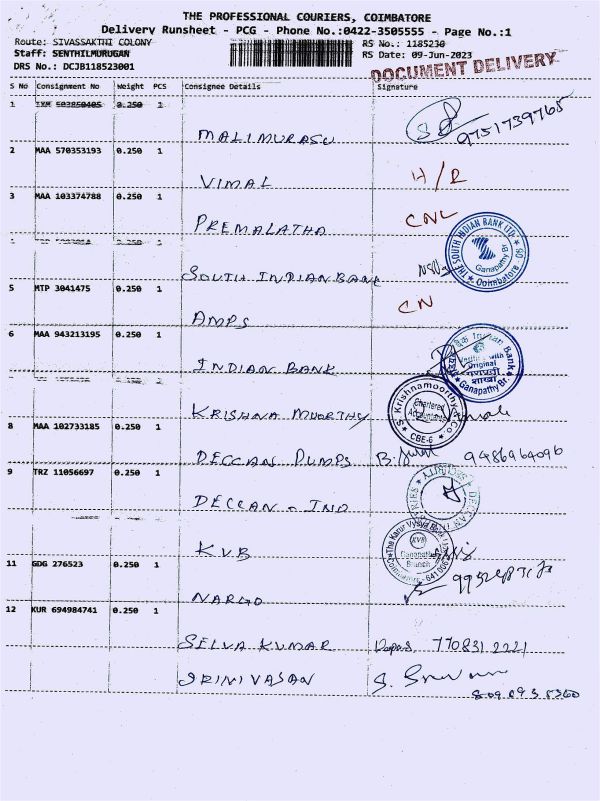 THE PROFESSIONAL COURIERS, COIMBATORE
Delivery Runsheet - PCG - Phone No.:0422-3505555 - Page No.:1
Route: SIVASSAKTHI COLONY RS No.: 1185230
Staff: SENTHILMURUGAN RS Date: 09-Jun-2023
DRS No.: DCJB118523001 DOCUMENT DELIVERY
S No Consignment No Weight PCS Consignee Details Signature
1 IXM 503850405 0.250 1
MALIMURASU 9751739765
2 MAA 570353193 0.250 1
VIMAL H/R
3 MAA 103374788 0.250 1
PREMALATHA CNL
THE SOUTH INDIAN BANK LTD. Ganapathy Br. Coimbatore
SOUTH INDIAN BANK
5 MTP 3041475 0.250 1 CN
AMPS
6 MAA 943213195 0.250 1
INDIAN BANK Indian Bank Verified with Original गणपती शाखा Ganapathy Br.
KRISHNA MUORTHY S. Krishnamoorthy & Co. Chartered Accountants CBE-6
8 MAA 102733185 0.250 1
DECCAN PUMPS 9486964096
9 TRZ 11056697 0.250 1
DECCAN - IND DECCAN SECURITY
KVB The Karur Vysya Bank KVB Ganapathy Branch Coimbatore - 641 006
11 GDG 276523 0.250 1
NARGO
12 KUR 694984741 0.250 1
SELVA KUMAR 770831 2221
SRINIVASAN